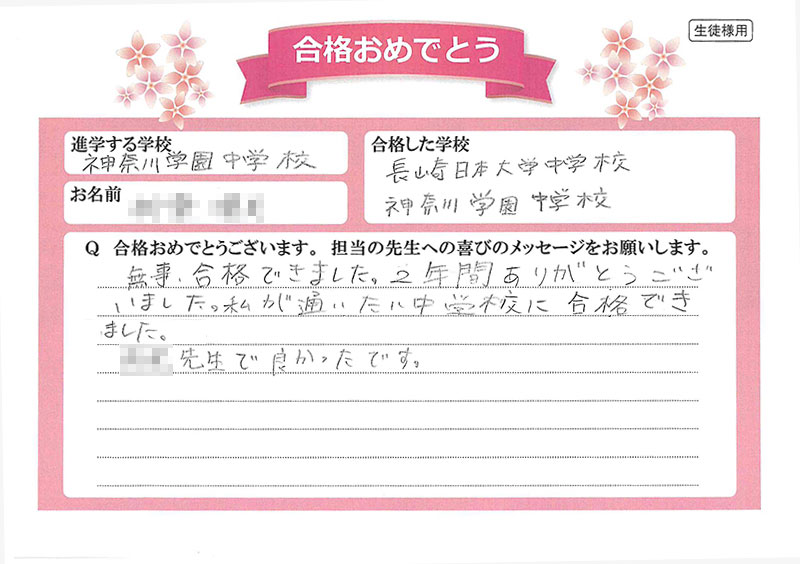 合格おめでとう
生徒様用
進学する学校
神奈川学園中学校
お名前
合格した学校
長崎日本大学中学校
神奈川学園中学校
Q 合格おめでとうございます。担当の先生への喜びのメッセージをお願いします。
無事、合格できました。2年間ありがとうござ
いました。私が通いたい中学校に合格でき
ました。
先生で良かったです。